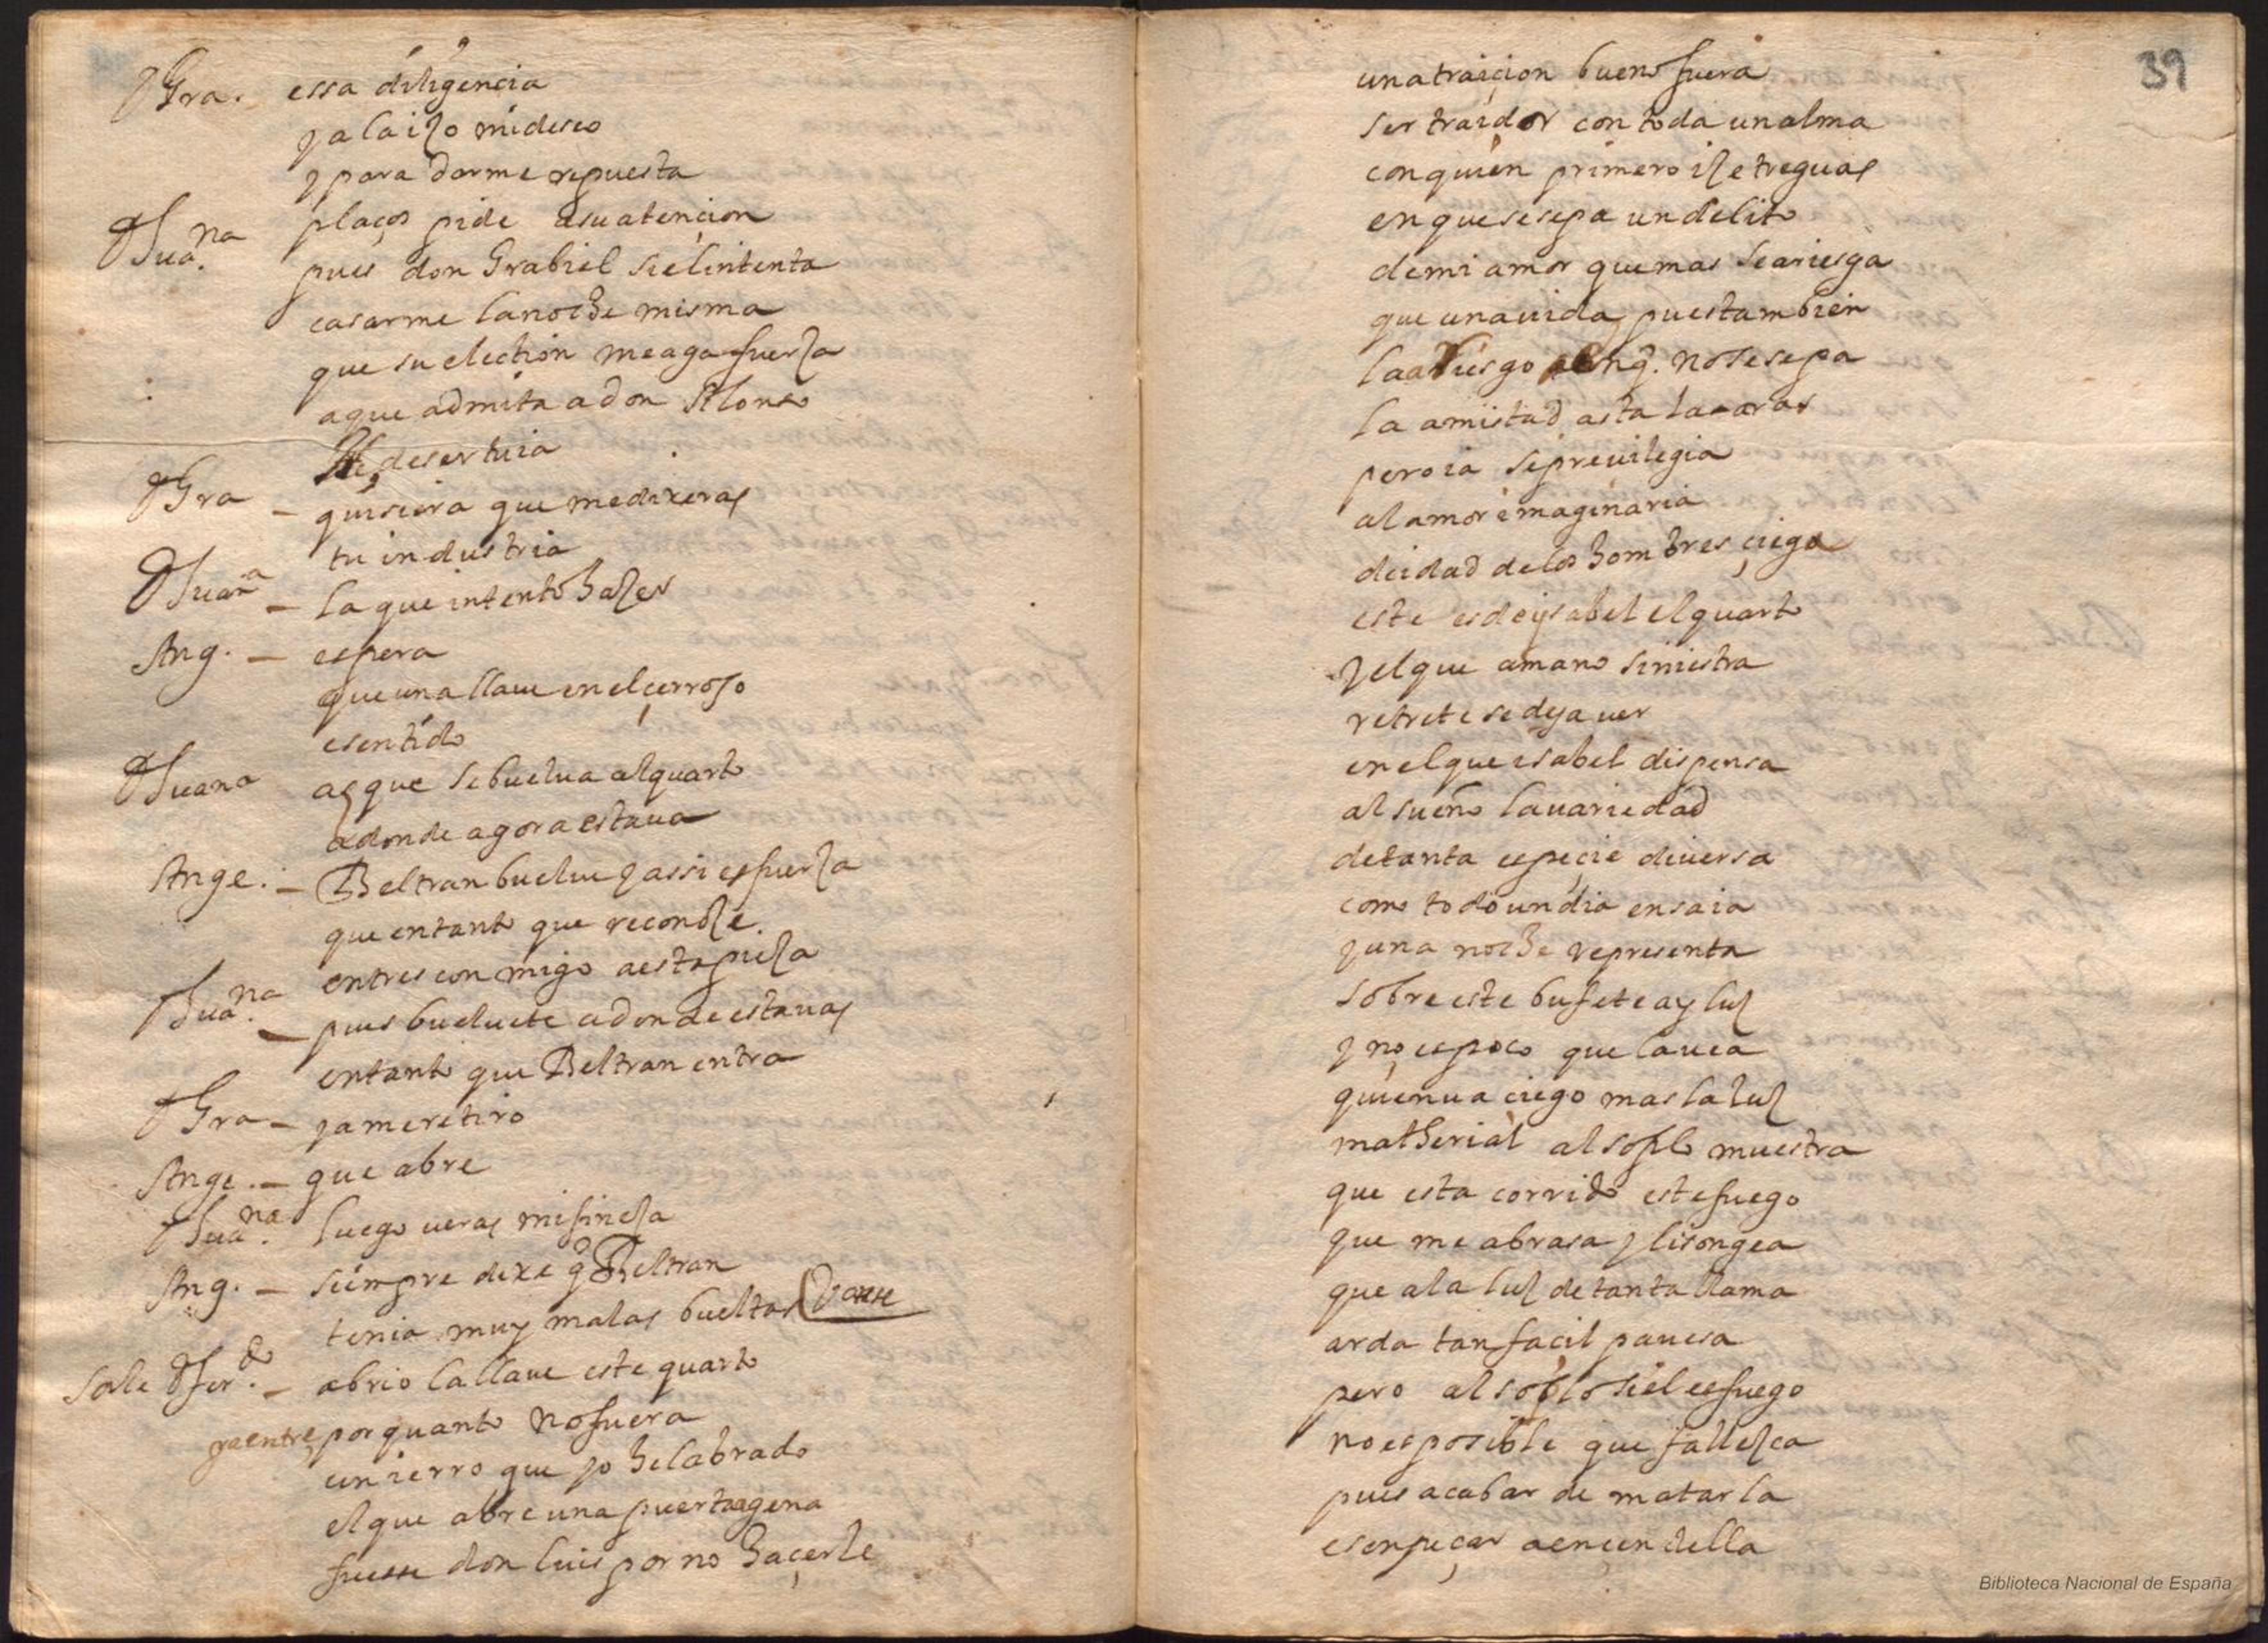 DGra. essa diligencia
ya la iço mi deseo
y para darme repuesta
plaços pide a su atençion
DJuana pues don Grabiel si el intenta
casarme la noche misma
que su election me aga fuerza
a que admita a don Alonso
e deser tuia
DGra - quisiera que me dixeras
tu industria
DJuana - la que intento hazer
Ang. - espera
que una llaue en el çerrojo
e sentido
DJuana az que se buelua al quarto
adonde agora estaua
Ange. - Beltran buelue y assi es fuerza
que en tanto que reconoze
entres conmigo a esta pieza
DJuana - pues bueluete a donde estauas
en tanto que Beltran entra
DGra - ya me retiro
Ange. - que abre
DJuana luego ueras mi fineza
Ang. - siempre dixe q Beltran
tenia muy malas bueltas Vanse
Sale D fer.do - abrio la llaue este quarto
ya entre por quanto no fuera
un ierro que yo he labrado
el que abre una puerta agena
fuesse don luis por no haçerle
39
una traiçion bueno fuera
ser traidor con toda un alma
con quien primero ize treguas
en que se sepa un delito
de mi amor que mas se ariesga
que una uida pues tambien
la a Riesgo en q. no se sepa
la amistad asta las aras
pero ia se preuilegia
al amor imaginaria
deidad de los hombres çiega
este es de ysabel el quarto
y el que a mano siniestra
retrete se deja uer
en el que isabel dispensa
al sueño la uariedad
de tanta espeçie diuersa
como todo un dia ensaia
y una noche representa
sobre este bufete ay luz
y no es poco que la uea
quien ua ciego mas la luz
matherial al soplo muestra
que esta corrido este fuego
que me abrasa y lisongea
que a la luz de tanta llama
arda tan façil pauesa
pero al soplo si el es fuego
no es posible que fallezca
pues acabar de matarla
es enpeçar a encendella
Biblioteca Nacional de España